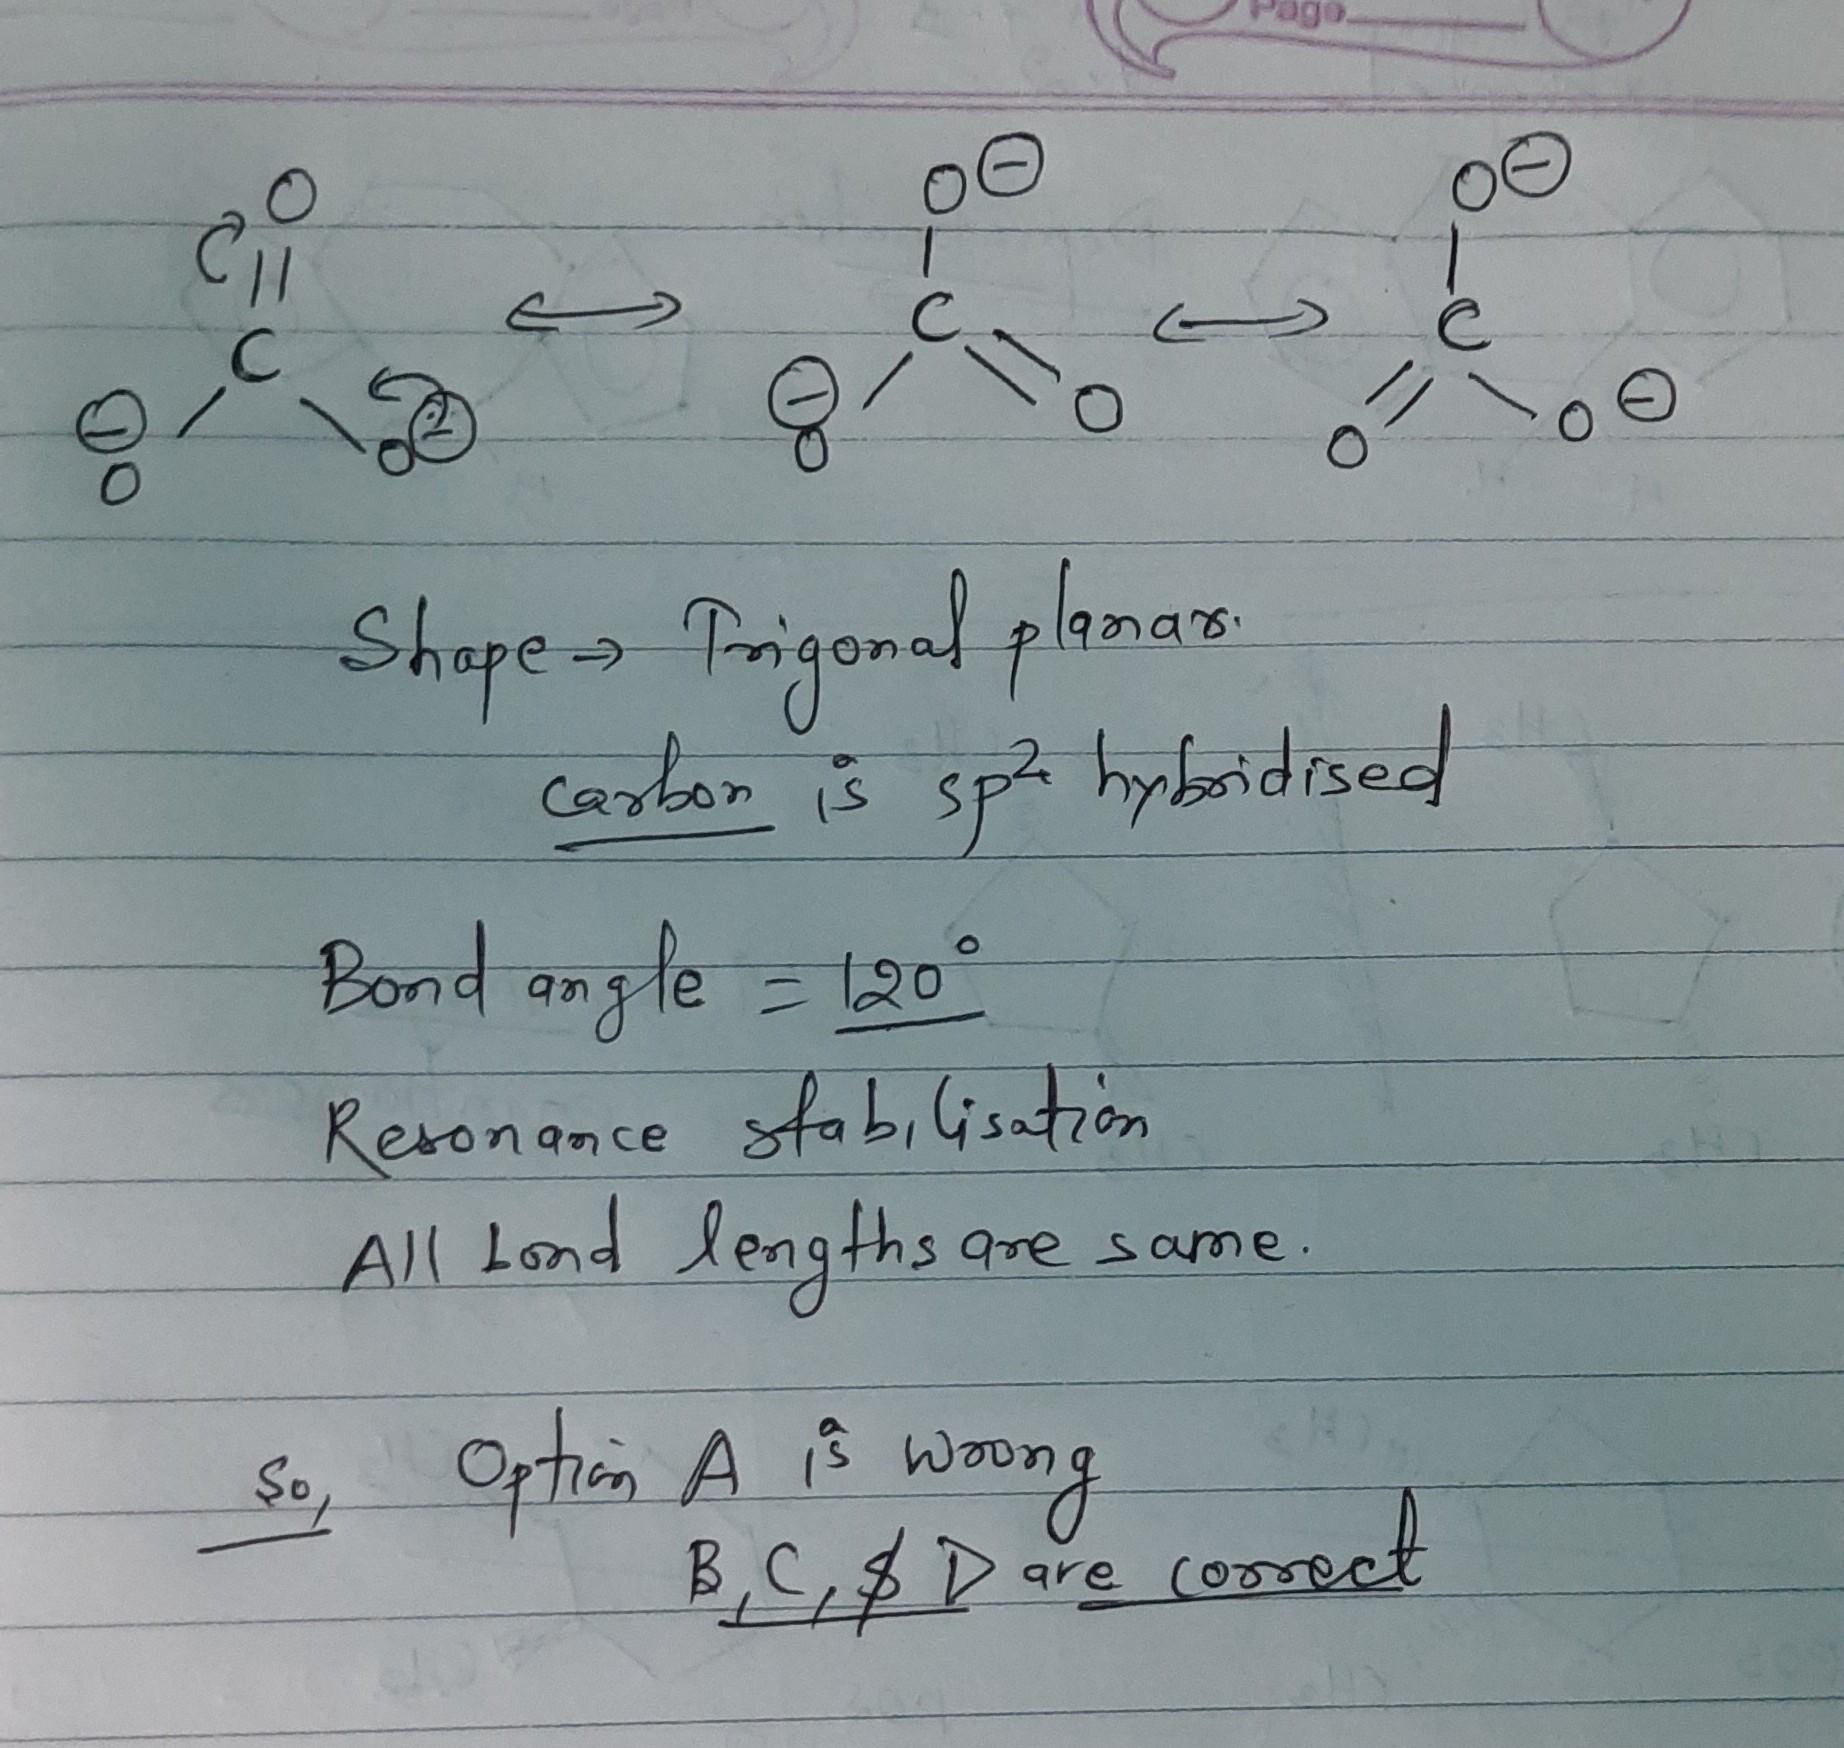 Page
O O⊖ O⊖
|| | |
C ⟷ C ⟷ C
⊖ / \ O⊖ ⊖ / \\ O // \ O⊖
O O O
Shape → Trigonal planar.
carbon is sp² hybridised
Bond angle = 120°
Resonance stabilisation
All bond lengths are same.
So, Option A is wrong
B, C, & D are correct